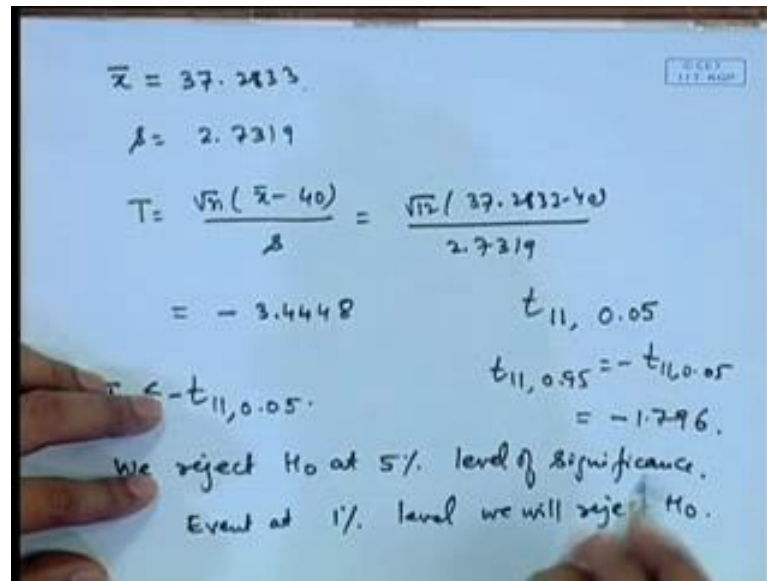 x̄ = 37.2833.
s = 2.7319
T = √n ( x̄ - 40) / s = √12 ( 37.2833-40) / 2.7319
= - 3.4448
t 11, 0.05
t 11, 0.95 = - t 11, 0.05
< - t 11, 0.05.
= - 1.796.
We reject Ho at 5%. level of significance.
Event at 1%. level we will reject Ho.